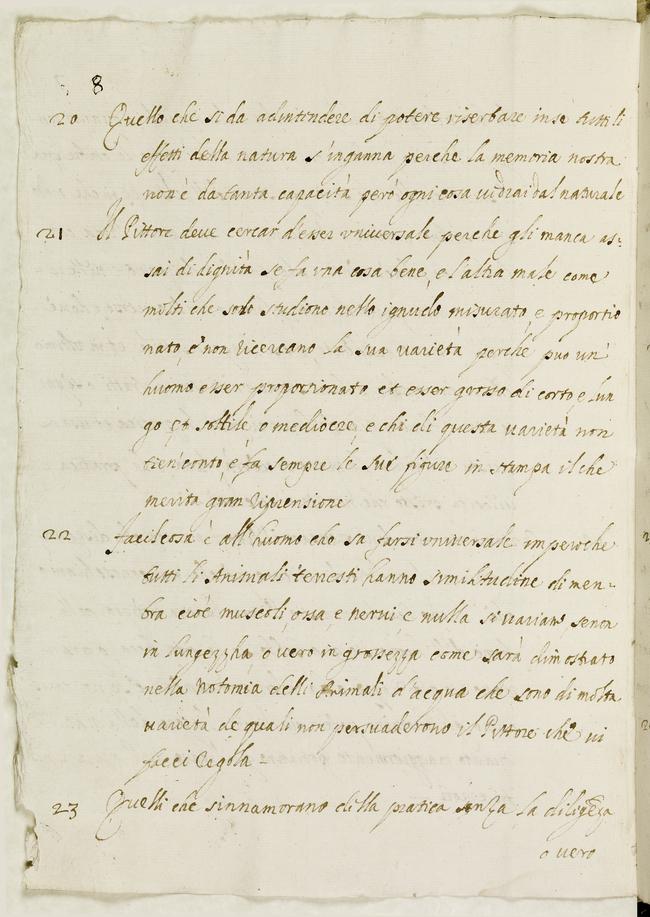 8
20 Quello che si da adintendere di potere riserbare in sè tutti li
effetti della natura s'inganna perche la memoria nostra
non è da tanta capacità però ogni cosa vidrai dal naturale
21 Il Pittore deve cercar d'esser vniversale perche gli manca as:
sai di dignità se fa vna cosa bene, e l'altra male come
molti che solo studiono nello ignudo misurato, e proportio
nato, e non ricercano la sua varietà perche può un'
huomo esser proportionato et esser grosso di corto e lun
go, et sottile, o mediocre, e chi di questa varietà non
tien conto, e fa sempre le sue figure in stampa il che
merita gran riprensione
22 Facil cosa è all'huomo che sa farsi vniversale imperoche
tutti li Animali terresti hanno similitudine di mem-
bra cioè muscoli, ossa, e nervi e nulla si variano, se non
in lungezzha o vero in grossezza come sarà dimostrato
nella Notomia delli Animali d'acqua che sono di molta
varietà de quali non persuaderono il Pittore che vi
facci regola -
23 Quelli che s'innamorano della pratica senza la diligeza
o vero